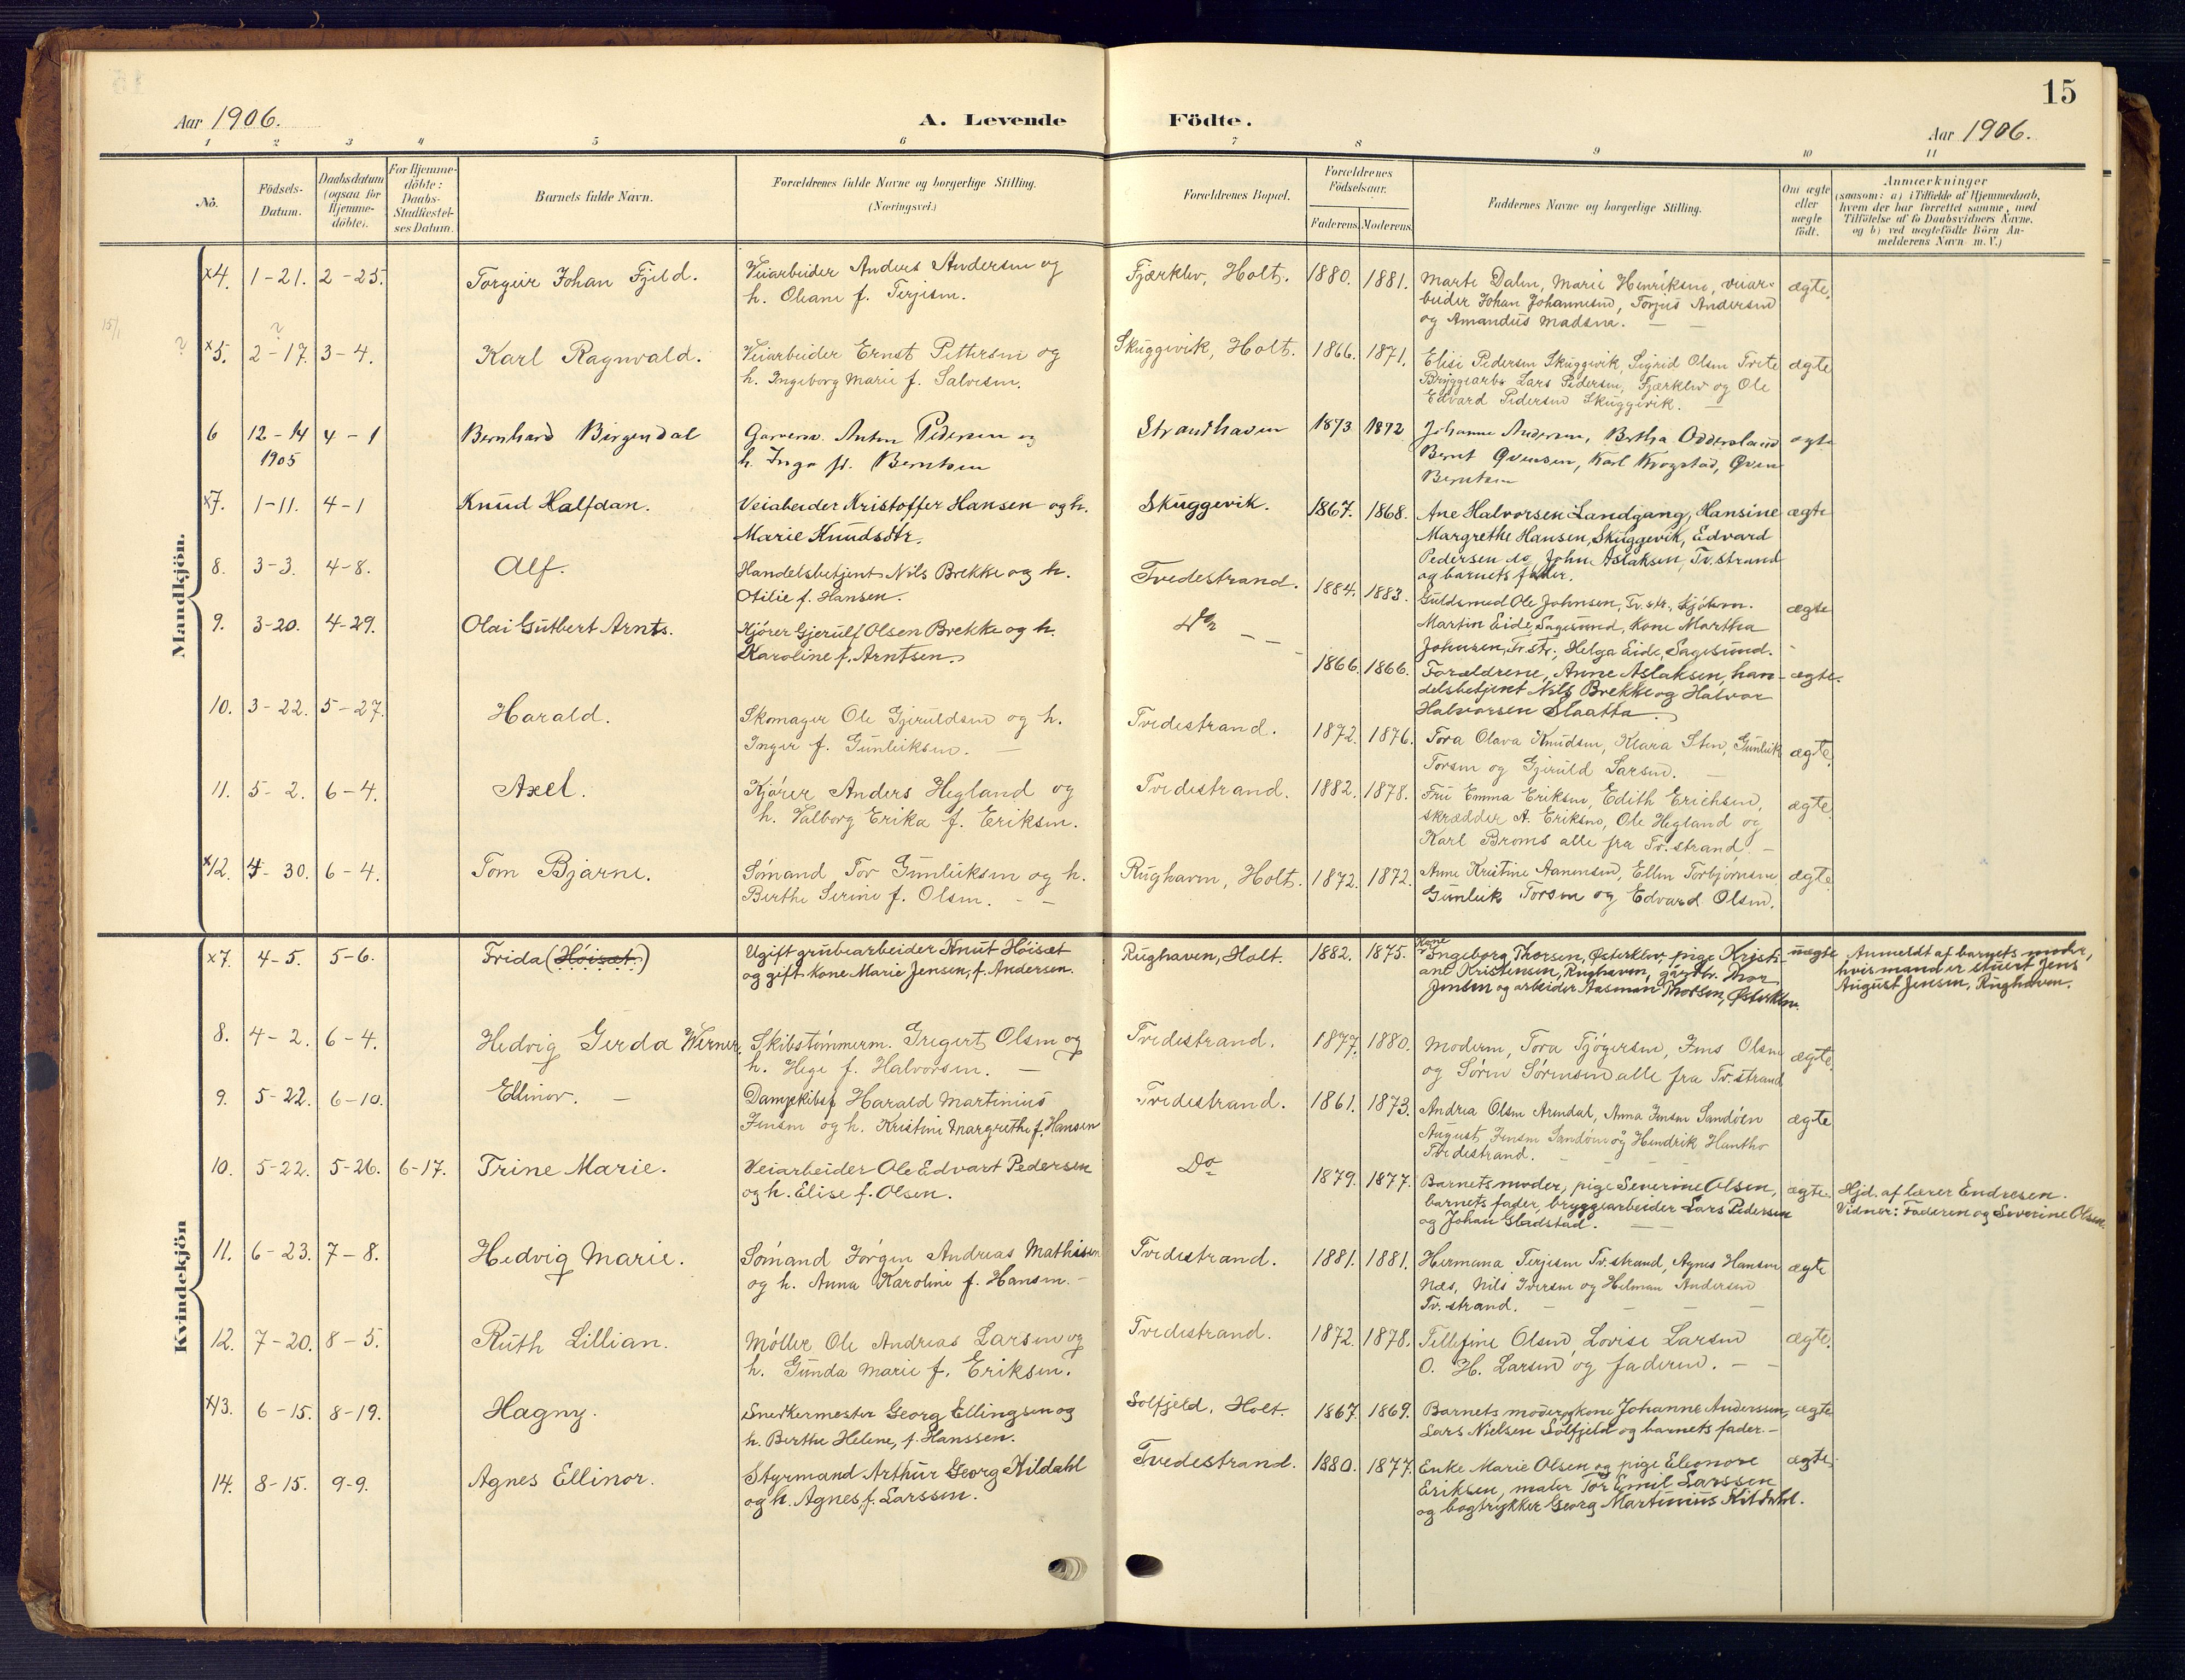 15
Aar 1906.
A. Levende Födte.
Aar 1906.
1 2 3 4 5 6 7 8 9 10 11
Nö.
Födsels-Datum.
Daabsdatum (ogsaa for Hjemme-döbte).
For Hjemme-döbte: Daabs-Stadfæstel-ses Datum.
Barnets fulde Navn.
Forældrenes fulde Navne og borgerlige Stilling. (Næringsvei.)
Forældrenes Bopæl.
Forældrenes Födselsaar.
Faderens. Moderens.
Faddernes Navne og borgerlige Stilling.
Om ægte eller uægte födt.
Anmærkninger
(saasom: a) i Tilfælde af Hjemmedaab,
hvem der har forrettet samme, med
Tilföielse af to Daabsvidners Navne,
og b) ved uægtefödte Börn An-
melderens Navn m. V.)
Mandkjön.
x4. 1-21. 2-25. Torgeir Johan Fjeld. Veiarbeider Anders Andersen og
h. Oleane f. Terjesen.
Fjærklev, Holt. 1880. 1881. Marte Dalen, Marie Henriksen, veiar-
beider Johan Johannesen, Torjus Andersen
og Amandus Madsen. ægte.
15/1
? x5. 2-17. 3-4. Karl Ragnvald. Veiarbeider Ernst Pettersen og
h. Ingeborg Marie f. Salvesen.
Skuggevik, Holt. 1866. 1871. Elise Pedersen Skuggevik, Sigrid Olsen Tvete
Bryggearb. Lars Pedersen, Fjærklev og Ole
Edvard Pedersen Skuggevik. ægte
6 12-14 1905 4-1 Bernhard Birgendal Garverm. Anton Pedersen og
h. Inga f. Berntsen
Strandhaven 1873 1872 Johanne Andersen, Bertha Oddersland
Bernt Qvensen, Karl Krogstad, Qven
Berntsen ægte
x7. 1-11. 4-1 Knud Halfdan. Veiabeider Kristoffer Hansen og h.
Marie Knudsdtr.
Skuggevik. 1867. 1868. Ane Halvorsen Landgang, Hansine
Margrethe Hansen, Skuggevik, Edvard
Pedersen do, John Aslaksen, Tv.strand
og barnets fader. ægte
8. 3-3. 4-8. Alf. Handelsbetjent Nils Brekke og h.
Otilie f. Hansen.
Tvedestrand. 1884. 1883. Guldsmed Ole Johnsen, Tv.str., Sjöberm.
Martin Eide, Sagesund, Kone Martha
Johnsen, Tv.str., Helga Eide, Sagesund. ægte
9. 3-20. 4-29. Olai Gutbert Arnts. Kjører Gjerulf Olsen Brekke og h.
Karoline f. Arntsen.
Do 1866. 1866. Forældrene, Anne Aslaksen, han-
delsbetjent Nils Brekke og Halvor
Halvorsen Slaatta. ægte.
10. 3-22. 5-27. Harald. Skomager Ole Gjeruldsen og h.
Inger f. Gunleiksen.
Tvedestrand. 1872. 1876. Tora Olava Knudsen, Klara Sten, Gunleik
Torsen og Gjeruld Larsen. ægte.
11. 5-2. 6-4. Axel. Kjører Anders Hegland og
h. Valborg Erika f. Eriksen.
Tvedestrand. 1882. 1878. Fru Emma Eriksen, Edith Erichsen,
skrædder A. Eriksen, Ole Hegland og
Karl Broms alle fra Tv.strand. ægte.
x12. 4-30. 6-4. Tom Bjarne. Sømand Tov Gunleiksen og h.
Berthe Serine f. Olsen.
Rughaven, Holt. 1872. 1872. Anne Kristine Aanensen, Ellen Torbjørnsen
Gunleik Torsen og Edvard Olsen. ægte.
Kvindekjön
x7. 4-5. 5-6. Frida (Høisæt.) Ugift grubearbeider Knut Høisæt
og gift kone Marie Jensen, f. Andersen.
Rughaven, Holt. 1882. 1875. Kone Ingeborg Thorsen, Østerklev, pige Kristi-
ane Kristensen, Rughaven, gårdbr. Thor
Jensen og arbeider Aasmun Thorsen, Østerklev. uægte
Anmeldt af barnets moder,
hvis mand er stuert Jens
August Jensen, Rughaven.
8. 4-2. 6-4. Hedvig Gerda Werner. Skibstømmerm. Gregert Olsen og
h. Hege f. Halvorsen.
Tvedestrand. 1877. 1880. Moderen, Tora Tjøgersen, Jens Olsen
og Søren Sørensen alle fra Tv.strand ægte.
9. 5-22. 6-10. Ellinor. Dampskibsf. Harald Martinius
Jensen og h. Kristine Margrethe f. Hansen
Tvedestrand. 1861. 1873. Andrea Olsen Arendal, Anna Jensen Sandøen
August Jensen Sandøen og Hendrik Hantho
Tvedestrand. ægte
10. 5-22. 5-26. 6-17. Trine Marie. Veiarbeider Ole Edvart Pedersen
og h. Elise f. Olsen.
Do 1879. 1877. Barnets moder, pige Severine Olsen,
barnets fader, bryggearbeider Lars Pedersen
og Johan Gladstad. ægte.
Hjd. af lærer Endresen.
Vidner: Faderen og Severine Olsen.
11. 6-23. 7-8. Hedvig Marie. Sømand Jørgen Andreas Mathisen
og h. Anna Karoline f. Hansen.
Tvedestrand. 1881. 1881. Hermana Terjesen Tv.strand, Agnes Hansen
Næs, Nils Iversen og Helman Andersen
Tv.strand. ægte
12. 7-20. 8-5. Ruth Lillian. Møller Ole Andreas Larsen og
h. Gunda Marie f. Eriksen.
Tvedestrand. 1872. 1878. Tellefine Olsen, Lovise Larsen
O. H. Larsen og faderen. ægte.
x13. 6-15. 8-19. Hagny. Snedkermester Georg Ellingsen og
h. Berthe Helene, f. Hanssen.
Solfjeld, Holt. 1867. 1869. Barnets moder og kone Johanne Anderssen,
Lars Nielsen Solfjeld og barnets fader. ægte
14. 8-15. 9-9. Agnes Ellinor. Styrmand Arthur Georg Kildahl
og h. Agnes, f. Larssen.
Tvedestrand. 1880. 1877. Enke Marie Olsen og pige Eleonore
Eriksen, maler Tor Emil Larssen
og bogtrykker Georg Martinius Kildahl. ægte.